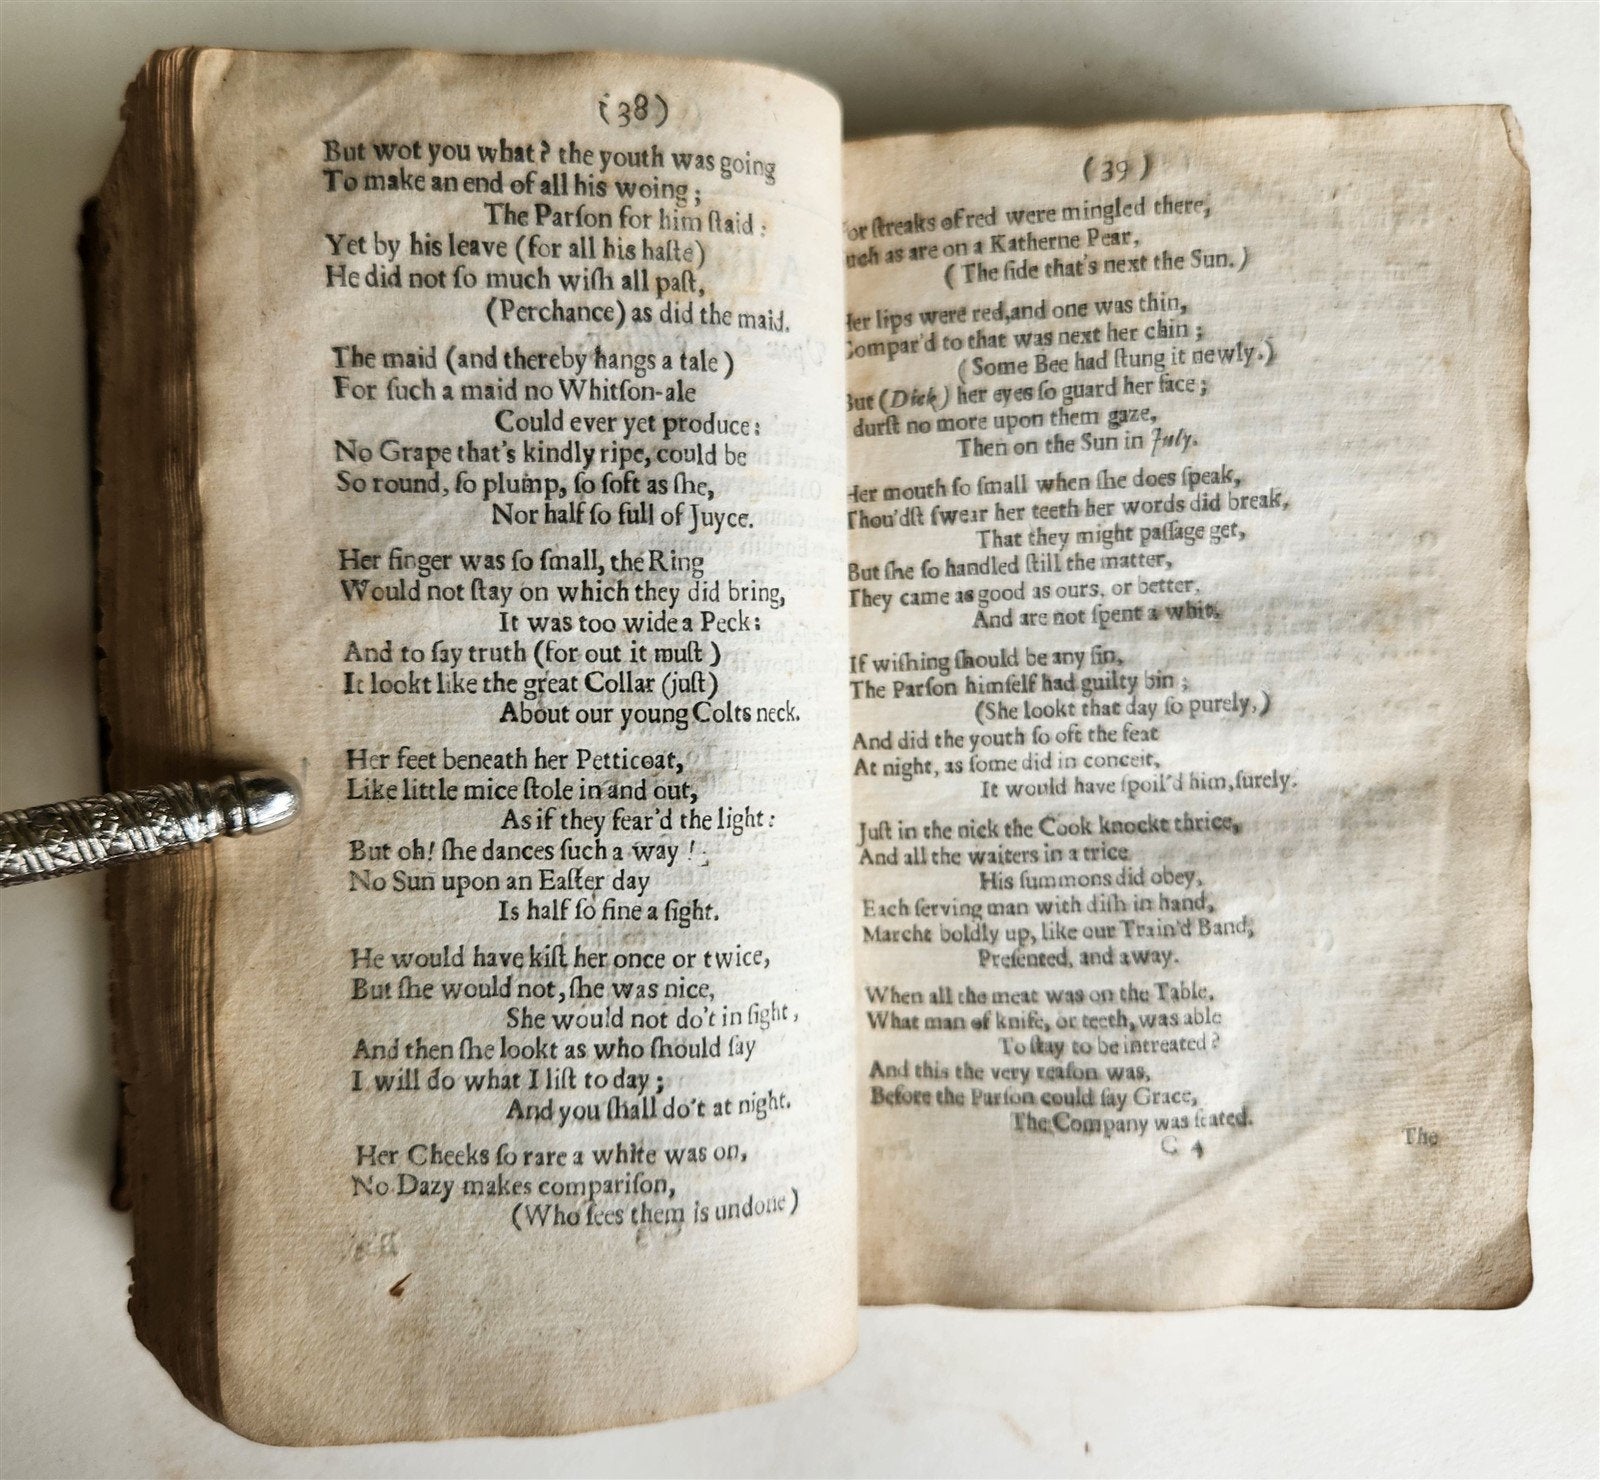 (38)
But wot you what? the youth was going
To make an end of all his woing;
The Parſon for him ſtaid:
Yet by his leave (for all his haſte)
He did not ſo much wiſh all paſt,
(Perchance) as did the maid.
The maid (and thereby hangs a tale)
For ſuch a maid no Whitſon-ale
Could ever yet produce:
No Grape that's kindly ripe, could be
So round, ſo plump, ſo ſoft as ſhe,
Nor half ſo full of Juyce.
Her finger was ſo ſmall, the Ring
Would not ſtay on which they did bring,
It was too wide a Peck:
And to ſay truth (for out it muſt)
It lookt like the great Collar (juſt)
About our young Colts neck.
Her feet beneath her Petticoat,
Like little mice ſtole in and out,
As if they fear'd the light:
But oh! ſhe dances ſuch a way!
No Sun upon an Eaſter day
Is half ſo fine a ſight.
He would have kiſt her once or twice,
But ſhe would not, ſhe was nice,
She would not do't in ſight,
And then ſhe lookt as who ſhould ſay
I will do what I liſt to day;
And you ſhall do't at night.
Her Cheeks ſo rare a white was on,
No Dazy makes compariſon,
(Who ſees them is undone)
(39)
or ſtreaks of red were mingled there,
uch as are on a Katherne Pear,
(The ſide that's next the Sun.)
Her lips were red, and one was thin,
Compar'd to that was next her chin;
(Some Bee had ſtung it newly.)
But (Dick) her eyes ſo guard her face;
durſt no more upon them gaze,
Then on the Sun in July.
Her mouth ſo ſmall when ſhe does ſpeak,
Thou'dſt ſwear her teeth her words did break,
That they might paſſage get,
But ſhe ſo handled ſtill the matter,
They came as good as ours, or better,
And are not ſpent a whit.
If wiſhing ſhould be any ſin,
The Parſon himſelf had guilty bin;
(She lookt that day ſo purely,)
And did the youth ſo oft the feat
At night, as ſome did in conceit,
It would have ſpoil'd him, ſurely.
Juſt in the nick the Cook knockt thrice,
And all the waiters in a trice
His ſummons did obey,
Each ſerving man with diſh in hand,
Marcht boldly up, like our Train'd Band,
Preſented, and away.
When all the meat was on the Table,
What man of knife, or teeth, was able
To ſtay to be intreated?
And this the very reaſon was,
Before the Parſon could ſay Grace,
The Company was ſeated.
C 4
The